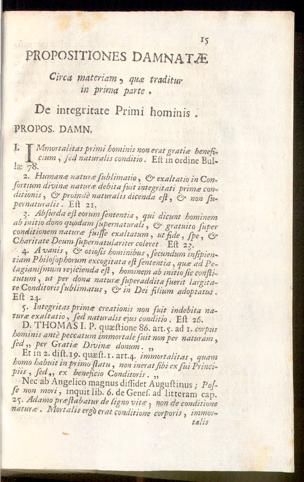 15
PROPOSITIONES DAMNATÆ
Circa materiam, quæ traditur
in prima parte.
De integritate Primi hominis.
PROPOS. DAMN.
1. IMmortalitas primi hominis non erat gratiæ benefi-
cium, sed naturalis conditio. Est in ordine Bul-
læ 78.
2. Humanæ naturæ sublimatio, & exaltatio in Con-
sortium divinæ naturæ debita fuit integritati primæ con-
ditionis, & proindè naturalis dicenda est, & non su-
pernaturalis. Est 21.
3. Absurda est eorum sententia, qui dicunt hominem
ab initio dono quodam supernaturali, & gratuito super
conditionem naturæ suisse exaltatum, ut fide, spe, &
Charitate Deum supernaturaliter coleret. Est 23.
4. A vanis, & otiosis hominibus, secundum insipien-
tiam Philosophorum excogitata est sententia, quæ ad Pe-
lagianismum rejicienda est, hominem ab initio sic consti-
tutum, ut per dona naturæ superaddita fuerit largita-
te Conditoris sublimatus, & in Dei filium adoptatus.
Est 24.
5. Integritas primæ creationis non fuit indebita na-
turæ exaltatio, sed naturalis ejus conditio. Est 26.
D. THOMAS I. P. quæstione 86. art. 5. ad 1. corpus
hominis antè peccatum immortale fuit non per naturam,
sed „ per Gratiæ Divinæ donum. „
Et in 2. dist. 19. quæst. 1. art. 4. immortalitas, quam
homo habuit in primo statu, non inerat sibi ex sui Princi-
piis, sed „ ex beneficio Conditoris. „
Nec ab Angelico magnus dissidet Augustinus; Pos-
se non mori, inquit lib. 6. de Genes. ad litteram cap.
25. Adamo præstabatur de ligno vitæ, non de conditione
naturæ. Mortalis ergò erat conditione corporis, immor-
talis